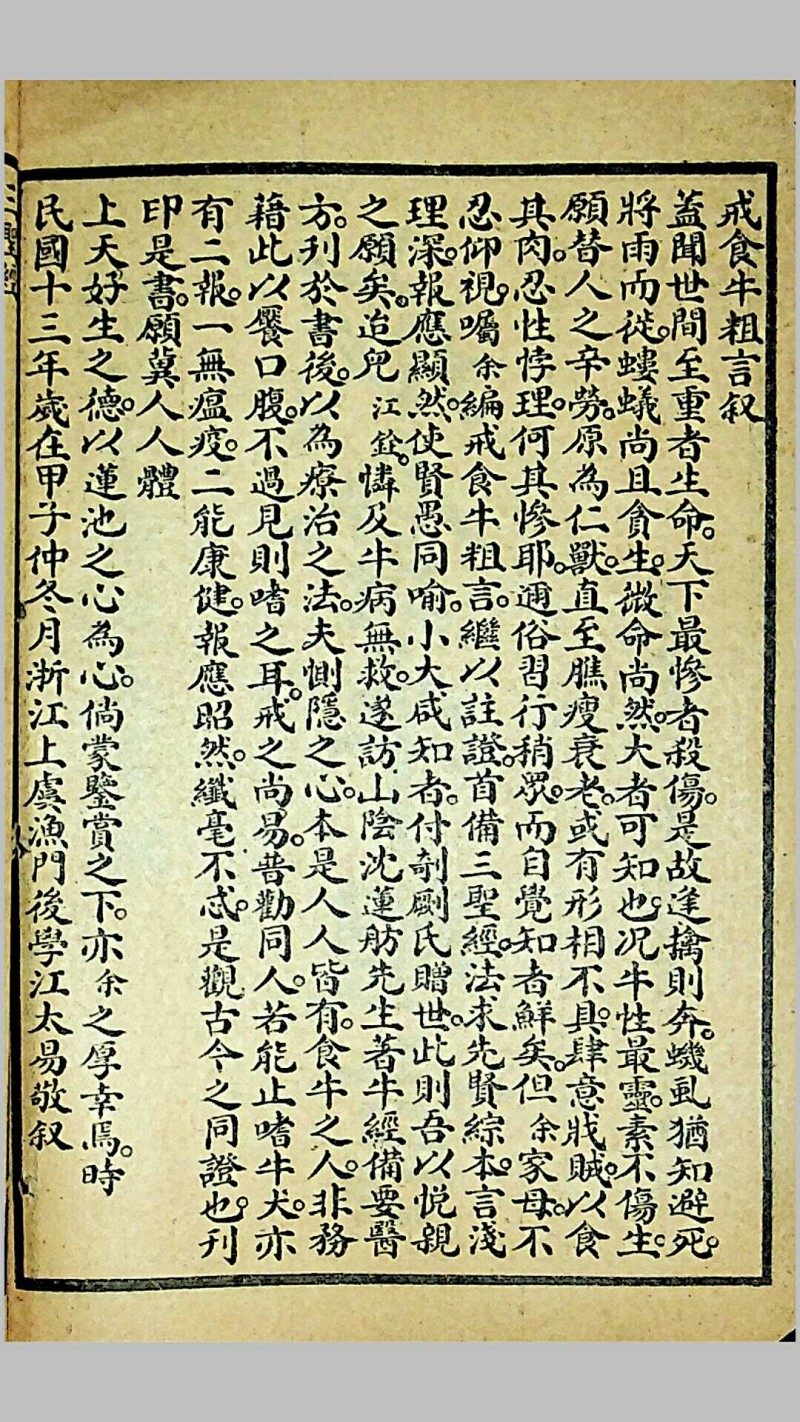 戒食牛粗言叙
蓋聞世間至重者生命。天下最慘者殺傷。是故逢擒則奔。蟣虱猶知避死。
將雨而徙。螻蟻尚且貪生。微命尚然。大者可知也。况牛性最靈。素不傷生。
願替人之辛勞。原為仁獸。直至膲瘦衰老。或有形相不具。肆意戕賊。以食
其肉。忍性悖理。何其慘耶。邇俗習行稍眾。而自覺知者鮮矣。但余家母。不
忍仰視。囑余編戒食牛粗言。繼以註證。首備三聖經。法求先賢綜本。言淺
理深。報應顯然。使賢愚同喻。小大咸知者。付剞劂氏贈世。此則吾以悦親
之願矣。迨兒江銓。憐及牛病無救。遂訪山陰沈蓮舫先生著牛經備要醫
方。刊於書後。以為療治之法。夫惻隱之心。本是人人皆有。食牛之人。非務
藉此以饜口腹。不過見則嗜之耳。戒之尚易。普勸同人。若能止嗜牛犬。亦
有二報。一無瘟疫。二能康健。報應昭然。纖毫不忒。是觀古今之同證也。刊
印是書。願冀人人體
上天好生之德。以蓮池之心為心。倘蒙鑒賞之下。亦余之厚幸焉。時
民國十三年歲在甲子仲冬月浙江上虞漁門後學江太易敬叙
三聖經